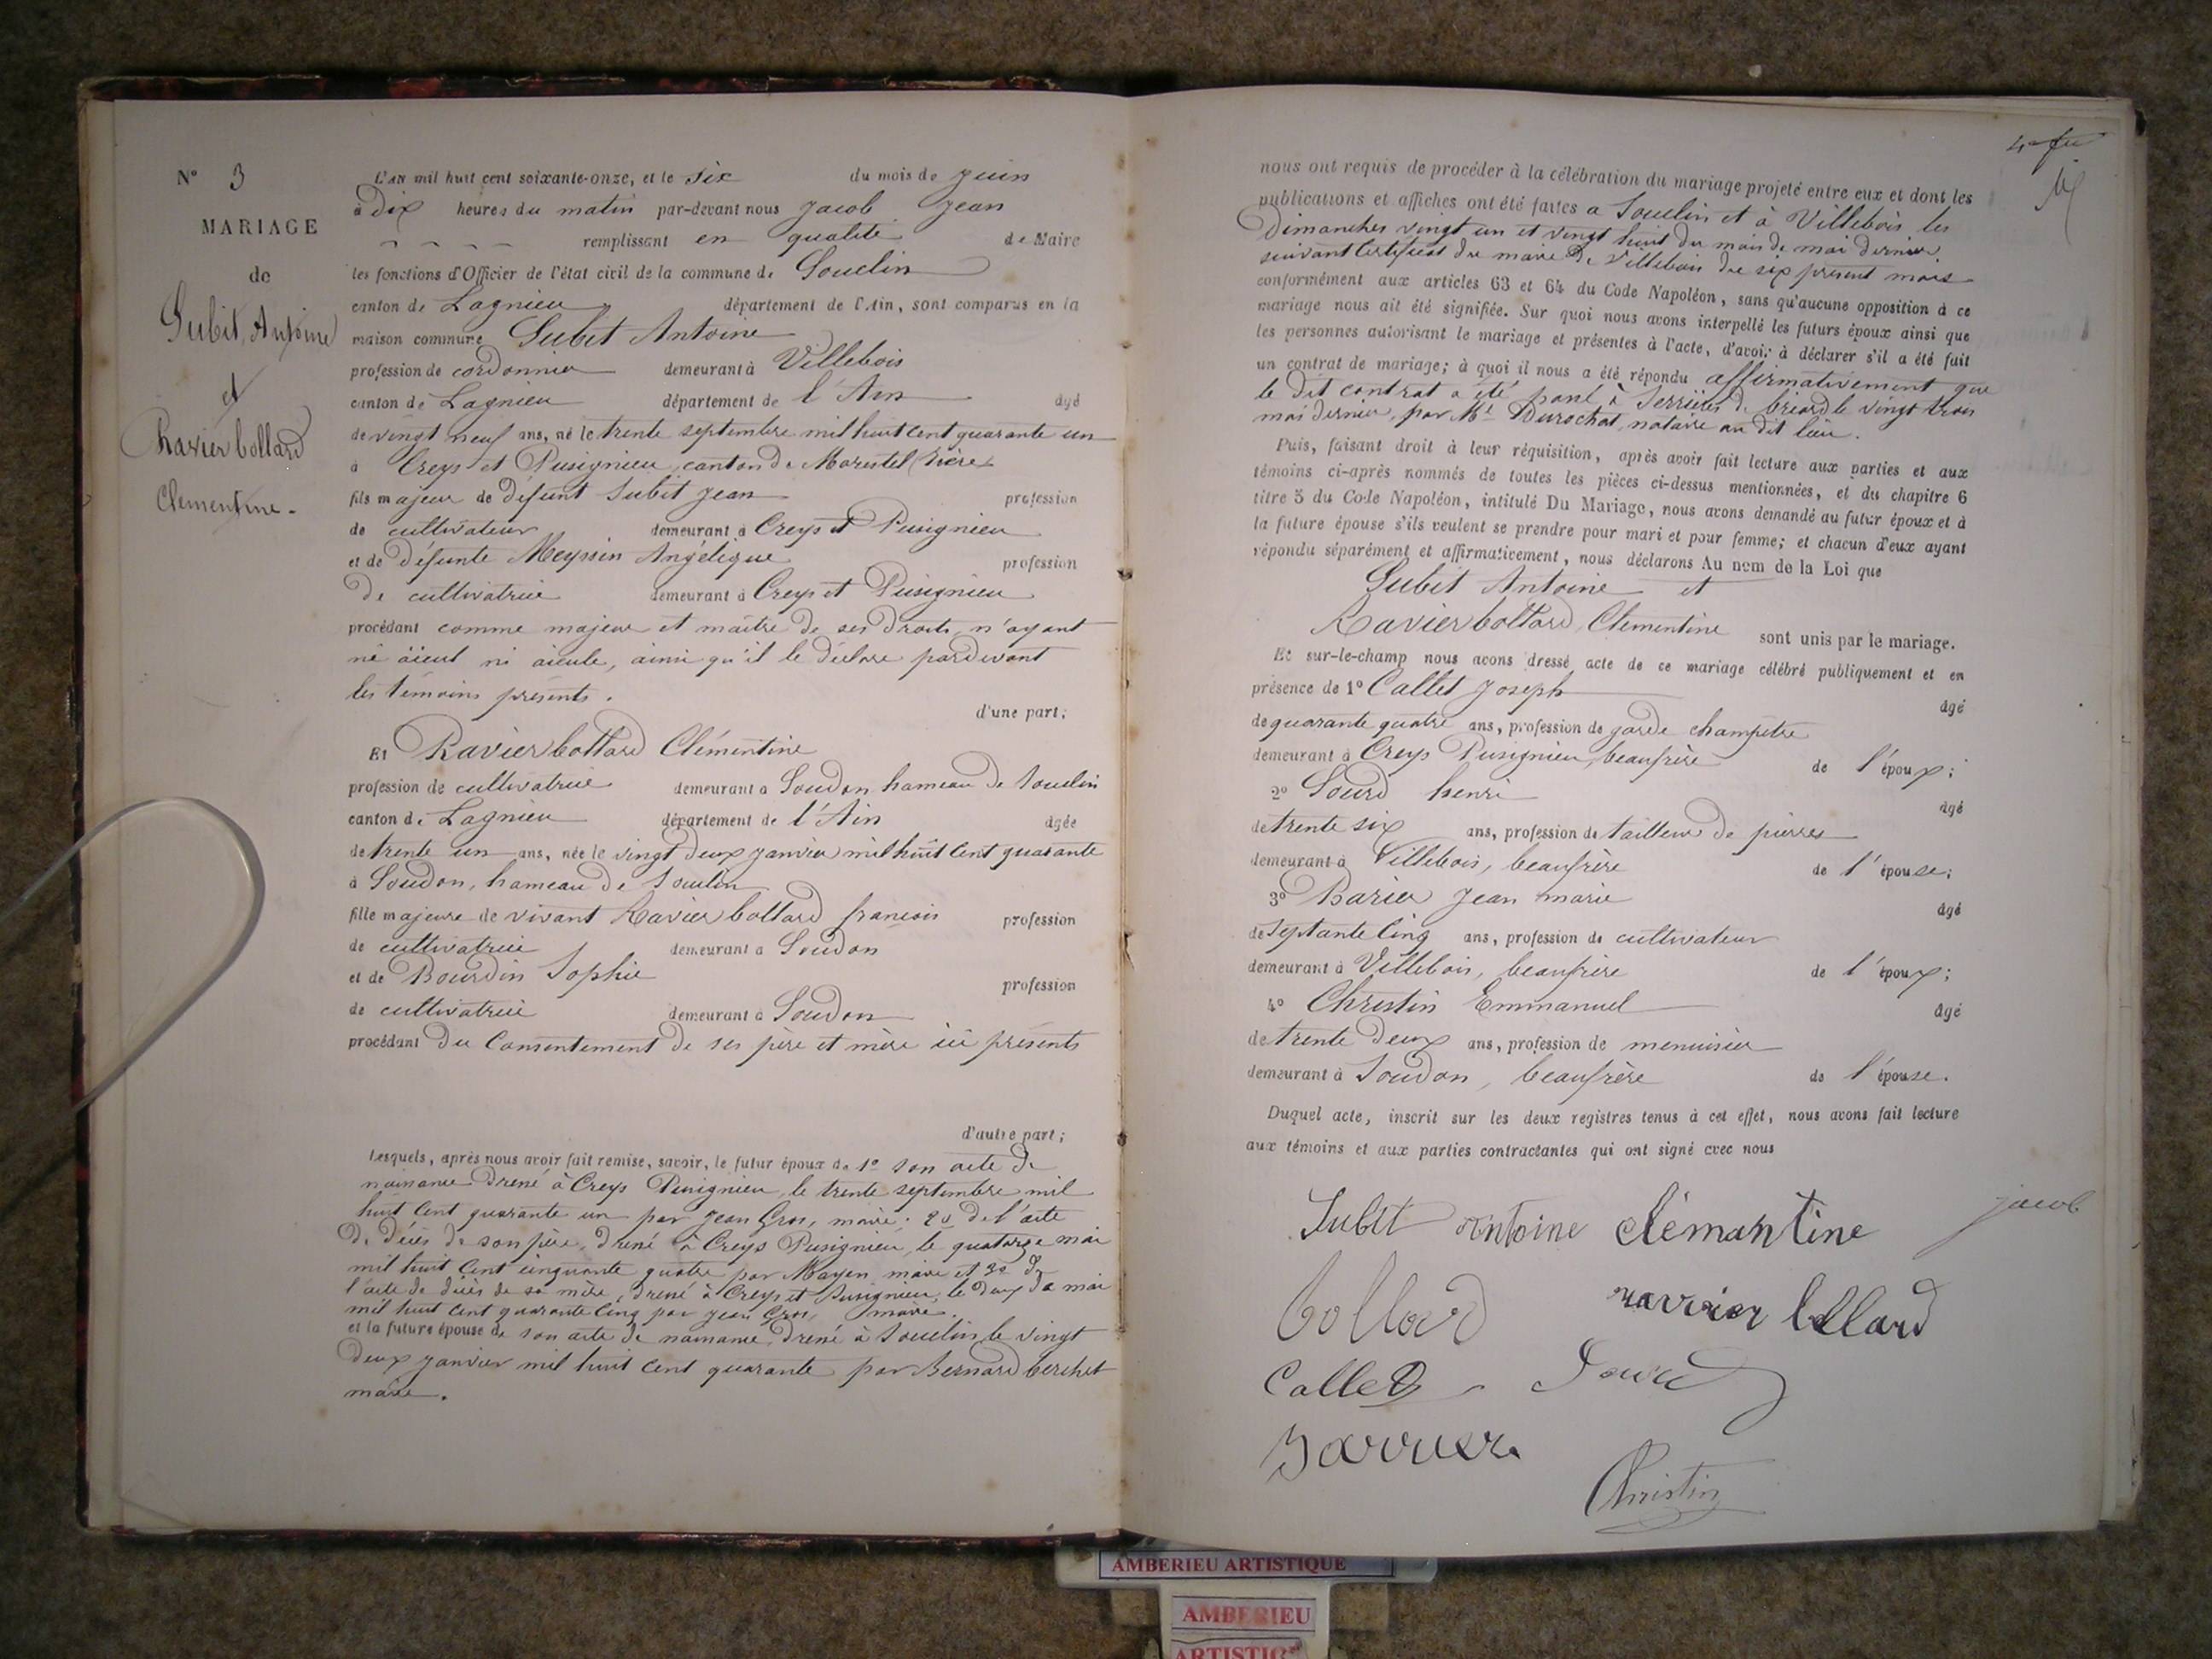 N° 3
MARIAGE
de
Subit Antoine
et
Ravier bollard
Clementine.
L'AN mil huit cent soixante-onze, et le six du mois de juin
à dix heures du matin par-devant nous Jacob Jean
remplissant en qualité de Maire
les fonctions d'Officier de l'état civil de la commune de Souclin
canton de Lagnieu département de l'Ain, sont comparus en la
maison commune Subit Antoine
profession de cordonnier demeurant à Villebois
canton de Lagnieu département de l'Ain âgé
de vingt neuf ans, né le trente septembre mil huit cent quarante un
à Creys et Pusignieu, canton de Morestel (Isère)
fils majeur de défunt Subit Jean profession
de cultivateur demeurant à Creys et Pusignieu
et de défunte Meyssin Angélique profession
de cultivatrice demeurant à Creys et Pusignieu
procédant comme majeur et maître de ses droits, n'ayant
ni aïeul ni aïeule, ainsi qu'il le déclare pardevant
les témoins présents.
d'une part;
Et Ravier bollard Clémentine
profession de cultivatrice demeurant à Soudon hameau de Souclin
canton de Lagnieu département de l'Ain âgée
de trente un ans, née le vingt deux janvier mil huit cent quarante
à Soudon, hameau de Souclin
fille majeure de vivant Ravier bollard françois profession
de cultivatrice demeurant à Soudon
et de Bourdin Sophie profession
de cultivatrice demeurant à Soudon
procédant du Consentement de ses père et mère ici présents
d'autre part;
Lesquels, après nous avoir fait remise, savoir, le futur époux de 1° son acte de
naissance dressé à Creys Pusignieu, le trente septembre mil
huit cent quarante un par Jean Gros, maire; 2° de l'acte
de décès de son père, dressé à Creys Pusignieu, le quatorze mai
mil huit cent cinquante quatre par Mayen maire et 3° de
l'acte de décès de sa mère, dressé à Creys et Pusignieu, le deux de mai
mil huit cent quarante cinq par Jean Gros, maire.
et la future épouse de son acte de naissance dressé à Souclin le vingt
deux janvier mil huit cent quarante par Bernard berchet
maire.
nous ont requis de procéder à la célébration du mariage projeté entre eux et dont les
publications et affiches ont été faites a Souclin et à Villebois les
Dimanches vingt un et vingt huit du mois de mai dernier,
suivant Certificat du maire de Villebois du six présent mois
conformément aux articles 63 et 64 du Code Napoléon, sans qu'aucune opposition à ce
mariage nous ait été signifiée. Sur quoi nous avons interpellé les futurs époux ainsi que
les personnes autorisant le mariage et présentes à l'acte, d'avoir à déclarer s'il a été fait
un contrat de mariage; à quoi il nous a été répondu affirmativement que
le dit contrat a été passé à Serrières de briord le vingt trois
mai dernier, par Me Durochat, notaire au dit lieu.
Puis, faisant droit à leur réquisition, après avoir fait lecture aux parties et aux
témoins ci-après nommés de toutes les pièces ci-dessus mentionnées, et du chapitre 6
titre 5 du Code Napoléon, intitulé Du Mariage, nous avons demandé au futur époux et à
la future épouse s'ils veulent se prendre pour mari et pour femme; et chacun d'eux ayant
répondu séparément et affirmativement, nous déclarons Au nom de la Loi que
Subit Antoine et
Ravier bollard Clementine sont unis par le mariage.
Et sur-le-champ nous avons dressé acte de ce mariage célébré publiquement et en
présence de 1° Callet Joseph âgé
de quarante quatre ans, profession de garde champêtre
demeurant à Creys Pusignieu, beaufrère de l'époux;
2° Sourd henri âgé
de trente six ans, profession de tailleur de pierres
demeurant à Villebois, beaufrère de l'épouse;
3° Barier Jean marie âgé
de Septante Cinq ans, profession de cultivateur
demeurant à Villebois, beaufrère de l'époux;
4° Christin Emmanuel âgé
de trente deux ans, profession de menuisier
demeurant à Soudon, beaufrère de l'épouse.
Duquel acte, inscrit sur les deux registres tenus à cet effet, nous avons fait lecture
aux témoins et aux parties contractantes qui ont signé avec nous
Subit Antoine clémantine jacob
bollard ravrier bollard
Callet Sourd
Barrier
Christin
AMBERIEU ARTISTIQUE
AMBERIEU